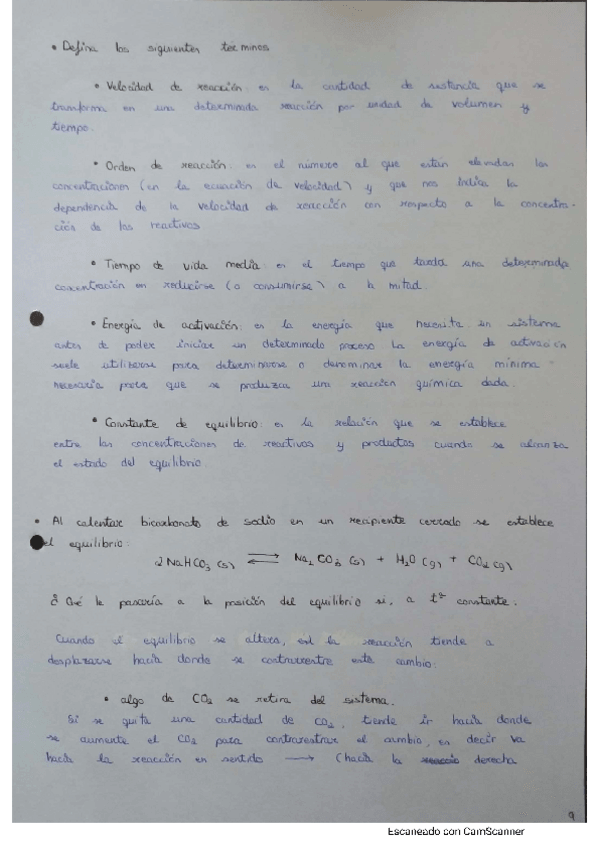 • Defina los siguientes términos
• Velocidad de reacción: es la cantidad de sustancia que se
transforma en una determinada reacción por unidad de volumen y
tiempo.
• Orden de reacción: es el número al que están elevadas las
concentraciones (en la ecuación de velocidad) y que nos indica la
dependencia de la velocidad de reacción con respecto a la concentra-
ción de los reactivos
• Tiempo de vida media: es el tiempo que tarda una determinada
concentración en reducirse (o consumirse) a la mitad.
• Energía de activación: es la energía que necesita un sistema
antes de poder iniciar un determinado proceso. La energía de activación
suele utilizarse para determinarse o denominar la energía mínima
necesaria para que se produzca una reacción química dada.
• Constante de equilibrio: es la relación que se establece
entre las concentraciones de reactivos y productos cuando se alcanza
el estado del equilibrio
• Al calentar bicarbonato de sodio en un recipiente cerrado se establece
el equilibrio:
2 NaHCO3 (s) ⇌ Na2CO3 (s) + H2O (g) + CO2 (g)
¿Qué le pasaría a la posición del equilibrio si, a tª constante:
Cuando el equilibrio se altera, la reacción tiende a
desplazarse hacia donde se contrarreste este cambio:
• algo de CO2 se retira del sistema.
Si se quita una cantidad de CO2, tiende ir hacia donde
se aumente el CO2 para contrarrestar el cambio, es decir va
hacia la reacción en sentido → (hacia la derecha
9
Escaneado con CamScanner